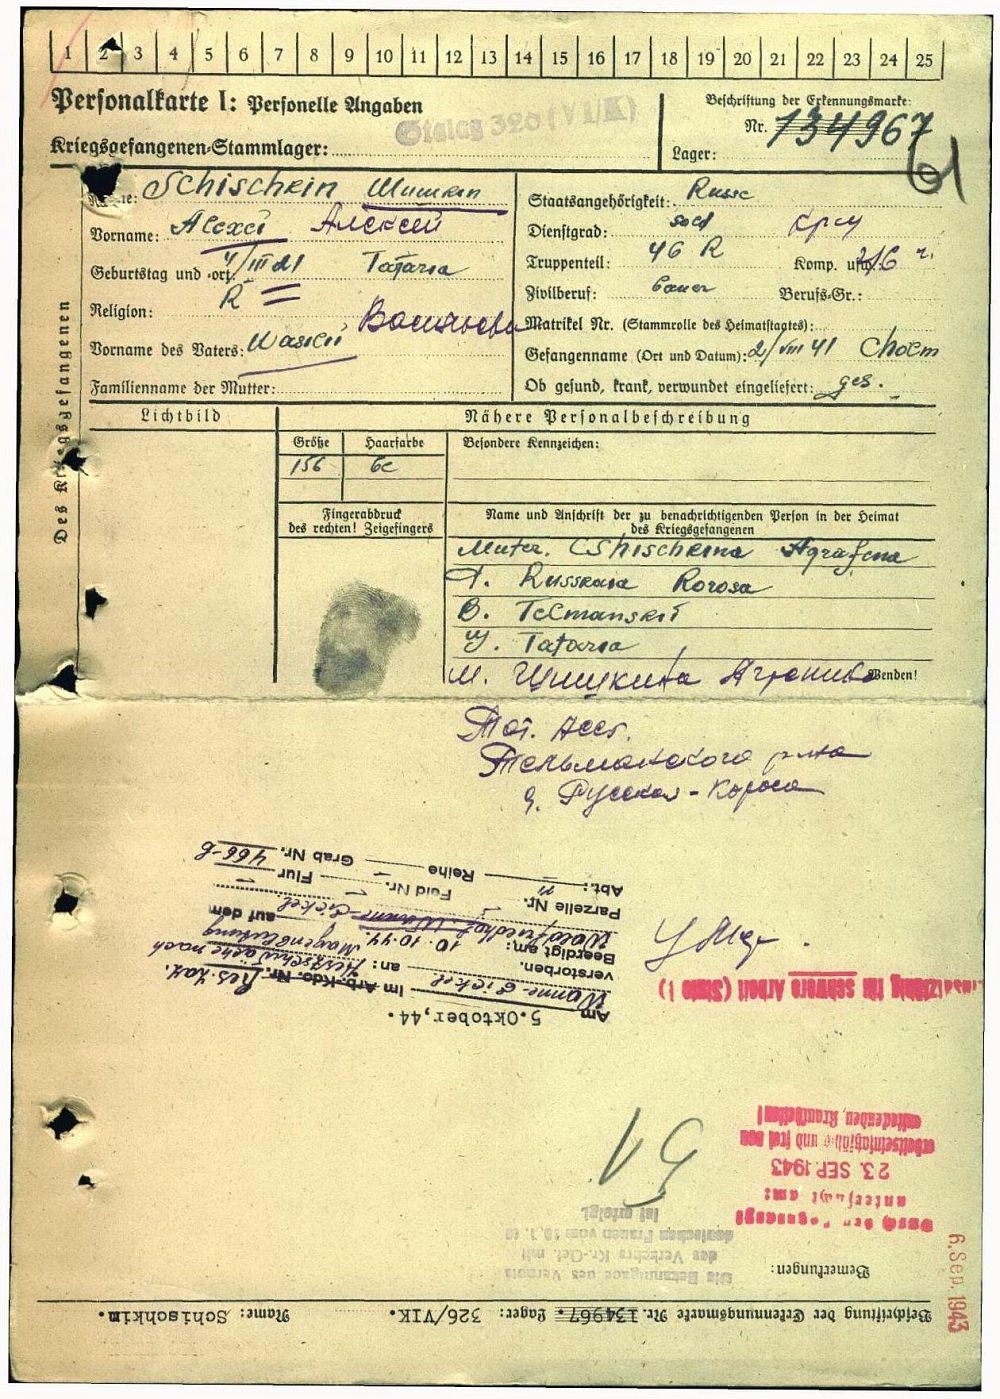 1 2 3 4 5 6 7 8 9 10 11 12 13 14 15 16 17 18 19 20 21 22 23 24 25
Personalkarte I: Personelle Angaben
Stalag 326 (VI/K)
Kriegsgefangenen-Stammlager:
Beschriftung der Erkennungsmarke:
Nr. 134967
Lager:
Des Kriegsgefangenen
Name: Schischkin Шишкин
Vorname: Alexei Алексей
Geburtstag und -ort: Tataria
Religion: R
Vorname des Vaters: Wasili
Familienname der Mutter:
Staatsangehörigkeit: Russe
Dienstgrad: sold
Truppenteil: 46 R Komp. usw.:
Zivilberuf: Bauer Berufs-Gr.:
Matrikel Nr. (Stammrolle des Heimatstaates):
Gefangenname (Ort und Datum): 2/VIII 41 Cholm
Ob gesund, krank, verwundet eingeliefert: ges.
Lichtbild
Nähere Personalbeschreibung
Größe Haarfarbe Besondere Kennzeichen:
156
Fingerabdruck
des rechten! Zeigefingers
Name und Anschrift der zu benachrichtigenden Person in der Heimat
des Kriegsgefangenen
Muter. Schischkina Agrafena
D. Russkaia Korosa
B. Telmanskii
Tataria
М. Шишкина
Wenden!
Тат. АССР.
Тельманского р-на
д. Русская-
Abt: Reihe Grab Nr. 466-b
Parzelle Nr. 11 Feld Nr. Flur
Waldfriedhof Wanne-Eickel auf dem
Beerdigt am: 10.10.44
verstorben. an: Herzschwäche nach Magenblutung
Wanne-Eickel Im Arb.-Kdo. Nr. Res. Laz.
Am 5.Oktober,44.
Einsatzfähig für schwere Arbeit (Stufe I)
51
entsteckenden Krankheiten!
arbeitseinsatzfähig und frei von
23. SEP. 1943
untersucht am:
ist erfolgt.
deutschen Frauen vom
des Verkehrs Kr.-Gef. mit
Die Bekanntgabe des Verbots
Bemerkungen:
6. Sep. 1943
Beschriftung der Erkennungsmarke Nr. 134967. Lager: 326/VIK. Name: Schischkin.